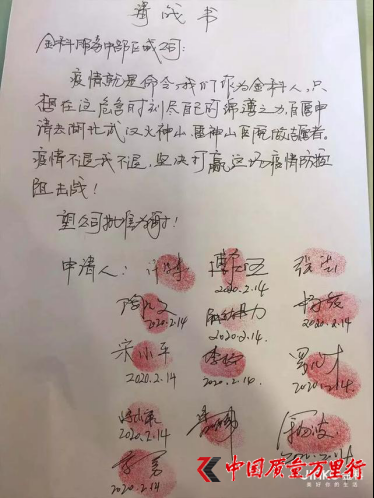 请战书
金科服务中部区域公司:
疫情就是命令,我们作为金科人,只
想在这危急时刻尽自己的绵薄之力,自愿申
请去湖北武汉火神山、雷神山医院做志愿者。
疫情不退我不退,坚决打赢这场疫情防控
阻击战!
望公司批准为谢!
申请人:
2020.2.14
2020.2.14 2020.2.14
2020.2.14
宋小军 李
2020.2.14 2020.2.14 2020.2.14
2020.2.14
李军
2020.2.14
中国质量万里行
美好你的生活